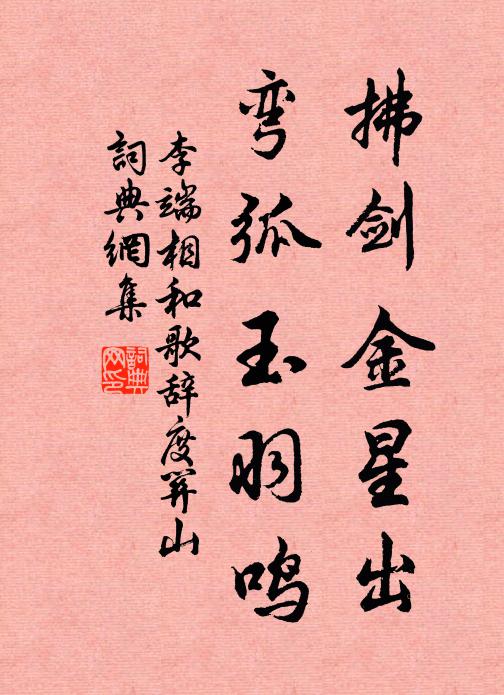 拂剑金星出
弯弧玉羽鸣
李端相和歌辞度関山
詞典網集
詞典网印